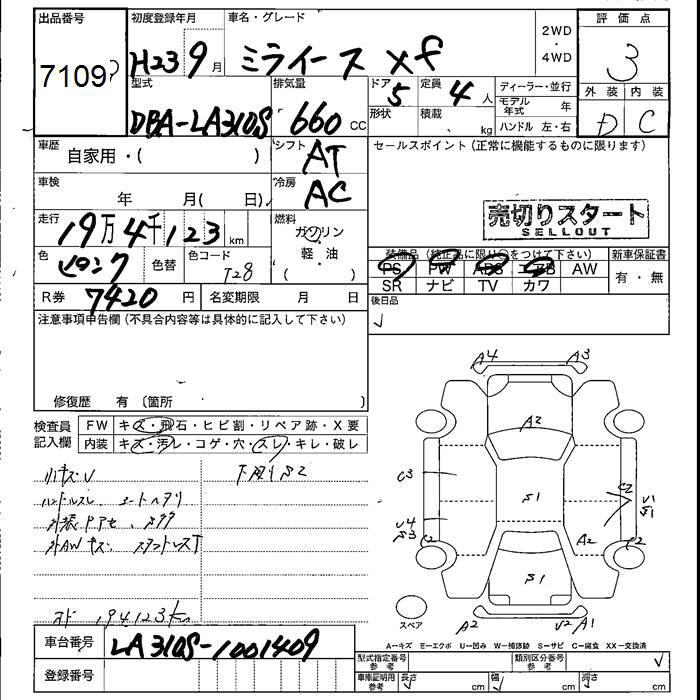 出品番号 初度登録年月 車名・グレード 2WD ・ 4WD 評価点
7109 H23 9月 ミライース Xf 3
型式 排気量 ドア 定員 ディーラー・並行 外装 内装
DBA-LA310S 660 CC 5 4人 モデル年式 年 D C
形状 積載 kg ハンドル 左・右
車歴 自家用・( ) シフト AT セールスポイント (正常に機能するものに限ります)
車検 年 月( 日) 冷房 AC
売切りスタート
SELLOUT
走行 19万4千123km 燃料 ガソリン ・ 軽・油 ( )
装備品 (純正品に限り○をつけて下さい) 新車保証書
色 ピンク 色替 色コード T28
PS PW ABS エアB AW 有・無
SR ナビ TV カワ
R券 7420円 名変期限 月 日 後日品
注意事項申告欄 (不具合内容等は具体的に記入して下さい)
修復歴 有 〔箇所 〕
検査員記入欄 FW キズ・飛石・ヒビ割・リペア跡・X要
内装 キズ・汚レ・コゲ・穴・スレ・キレ・破レ
ハンドルスレ シートヘタリ
194123km
車台番号 LA310S-1001409
登録番号
A4 A3
A2
C3 S1 C2 V1 S1
U4 S3 C2 A2 C2
S1
スペア A2 U2 A1
A-キズ E-エクボ U-凹み W-補修跡 S-サビ C-腐食 XX-交換済
型式指定番号 参考 類別区分番号 参考
車庫証明用 参考 長さ cm 幅 cm 高さ cm